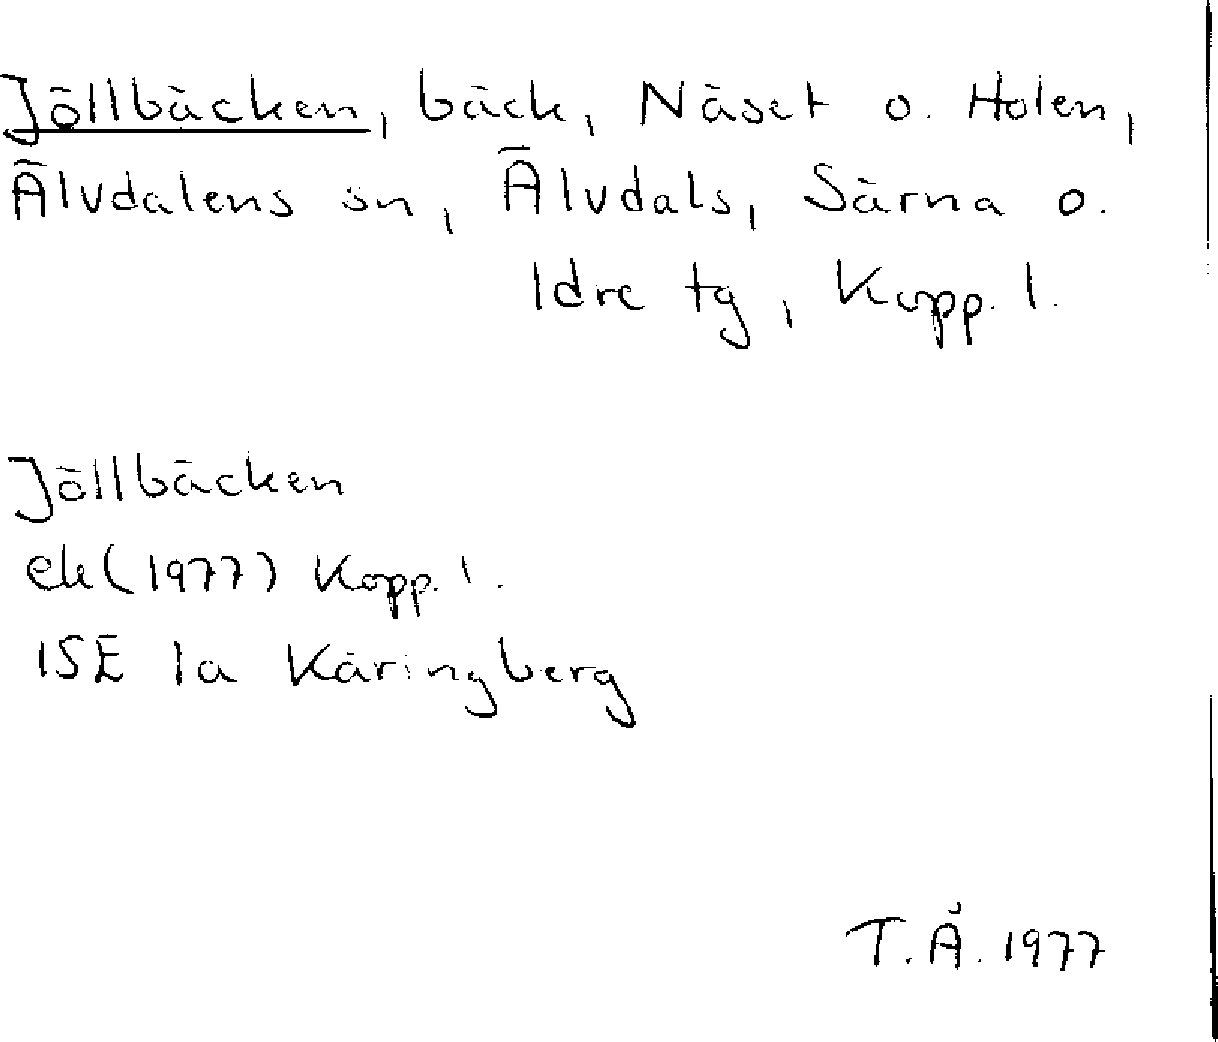 Jöllbäcken, bäck, Näset o. Holen,
Älvdalens sn, Älvdals, Särna o.
Idre tg, Kopp. l.
Jöllbäcken
ek (1977) Kopp. l.
15E 1a Käringberg
T. Å. 1977